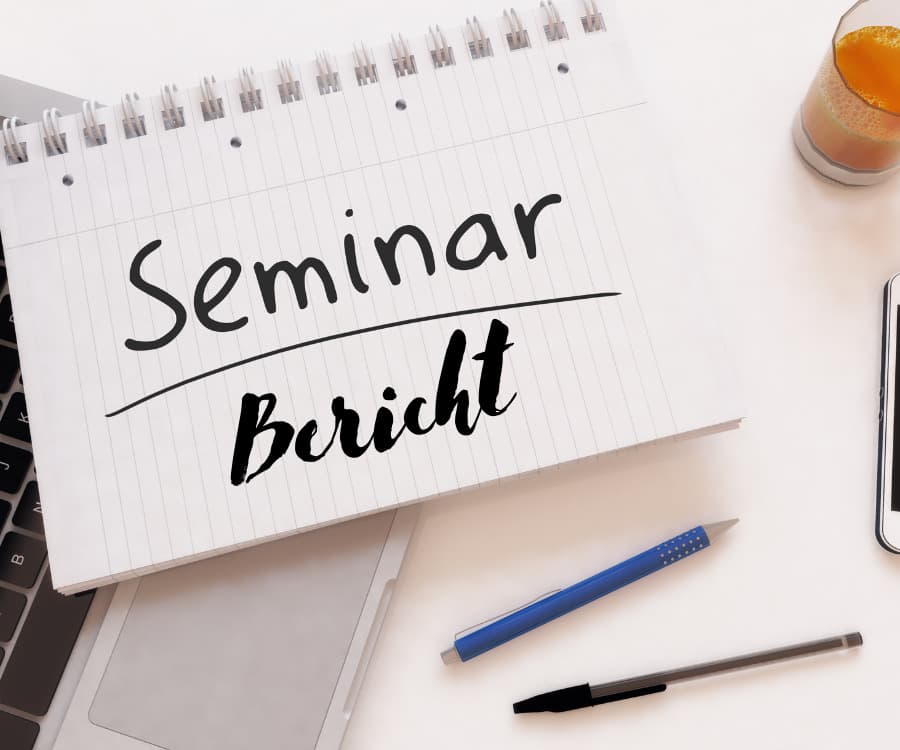 Seminar
Bericht
K
J
N
B